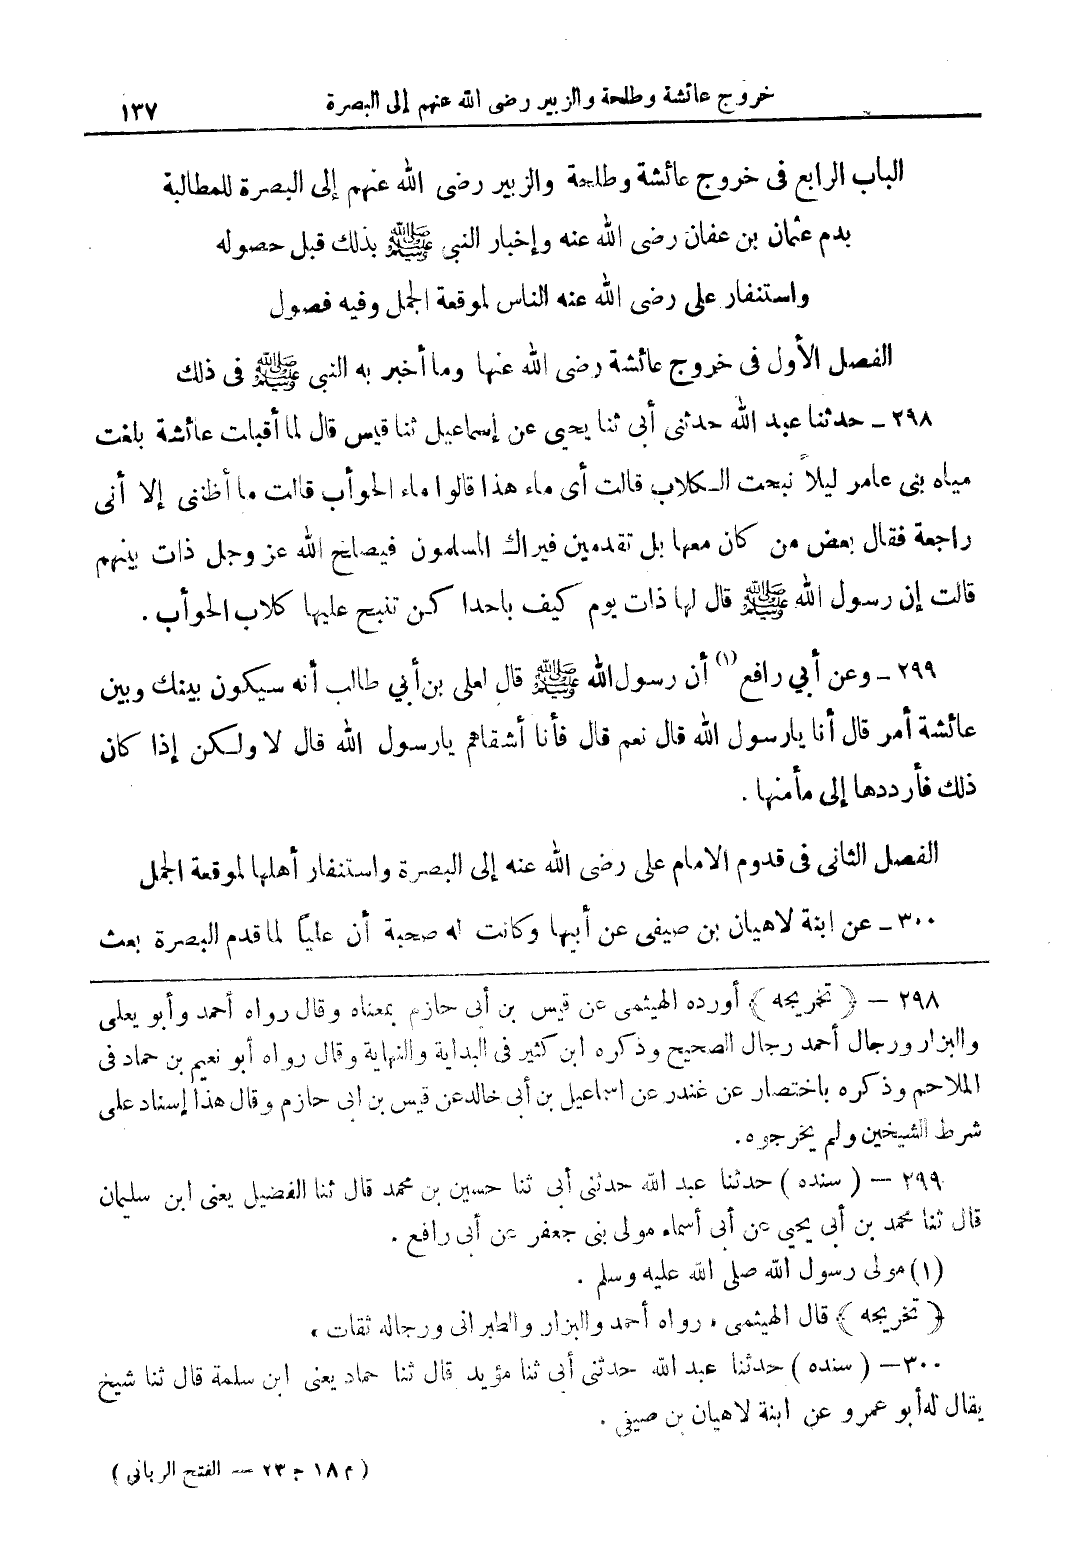 خروج عائشة وطلحة والزبير رضى الله عنهم إلى البصرة ١٣٧
الباب الرابع فى خروج عائشة وطلحة والزبير رضى الله عنهم إلى البصرة للمطالبة
بدم عثمان بن عفان رضى الله عنه وإخبار النبى ﷺ بذلك قبل حصوله
واستنفار على رضى الله عنه الناس لموقعة الجمل وفيه فصول
الفصل الأول فى خروج عائشة رضى الله عنها وما أخبر به النبى ﷺ فى ذلك
٢٩٨ - حدثنا عبد الله حدثنى أبى ثنا يحيى عن إسماعيل ثنا قيس قال لما أقبلت عائشة بلغت
مياه بنى عامر ليلاً نبحت الكلاب قالت أى ماء هذا قالوا ماء الحوأب قالت ما أظننى إلا أنى
راجعة فقال بعض من كان معها بل تقدمين فيراك المسلمون فيصلح الله عز وجل ذات بينهم
قالت إن رسول الله ﷺ قال لها ذات يوم كيف باحدا كن تنبح عليها كلاب الحوأب .
٢٩٩ - وعن أبي رافع (١) أن رسول الله ﷺ قال لعلى بن أبي طالب أنه سيكون بينك وبين
عائشة أمر قال أنا يارسول الله قال نعم قال فأنا أشقاهم يارسول الله قال لا ولكن إذا كان
ذلك فأرددها إلى مأمنها .
الفصل الثانى فى قدوم الامام على رضى الله عنه إلى البصرة واستنفار أهلها لموقعة الجمل
٣٠٠ - عن ابنة لاهبان بن صيفى عن أبيها وكانت له صحبة أن علياً لما قدم البصرة بعث
٢٩٨ - ﴿ تخريجه ﴾ أورده الهيثمى عن قيس بن أبى حازم بمعناه وقال رواه أحمد وأبو يعلى
والبزار ورجال أحمد رجال الصحيح وذكره ابن كثير فى البداية والنهاية وقال رواه أبو نعيم بن حماد فى
الملاحم وذكره باختصار عن غندر عن اسماعيل بن أبى خالد عن قيس بن ابى حازم وقال هذا إسناد على
شرط الشيخين ولم يخرجوه.
٢٩٩ - ( سنده ) حدثنا عبد الله حدثنى أبى ثنا حسين بن محمد قال ثنا الفضيل يعنى ابن سليمان
قال ثنا محمد بن أبى يحيى عن أبى أسماء مولى بنى جعفر عن أبى رافع .
(١) مولى رسول الله صلى الله عليه وسلم .
﴿ تخريجه ﴾ قال الهيثمى ، رواه أحمد والبزار والطبرانى ورجاله ثقات ،
٣٠٠ - ( سنده ) حدثنا عبد الله حدثنى أبى ثنا مؤيد قال ثنا حماد يعنى ابن سلمة قال ثنا شيخ
يقال له أبو عمرو عن ابنة لاهبان بن صيفى .
( م ١٨ ج ٢٣ - الفتح الربانى )